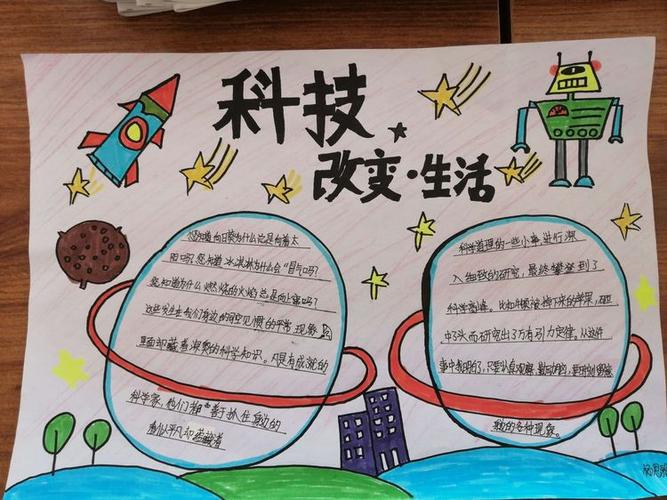 科技
改变·生活
您知道向日葵为什么总是向着太
阳吗?您知道冰淇淋为什么会"冒气"吗?
您知道为什么燃烧的火焰总是向上窜吗?
这些发生在我们身边的司空见惯的平常现象
里面却藏着深奥的科学知识。凡是有成就的
科学家,他们都善于抓住身边的
看似平凡和蕴藏着
科学道理的一些小事进行深
入细致的研究,最终攀登到了
科学高峰。比如牛顿被掉下来的苹果,砸
中了头而研究出了万有引力定律。从这件
事中表明的了,只要认真观察,勤动的
的各种现象。